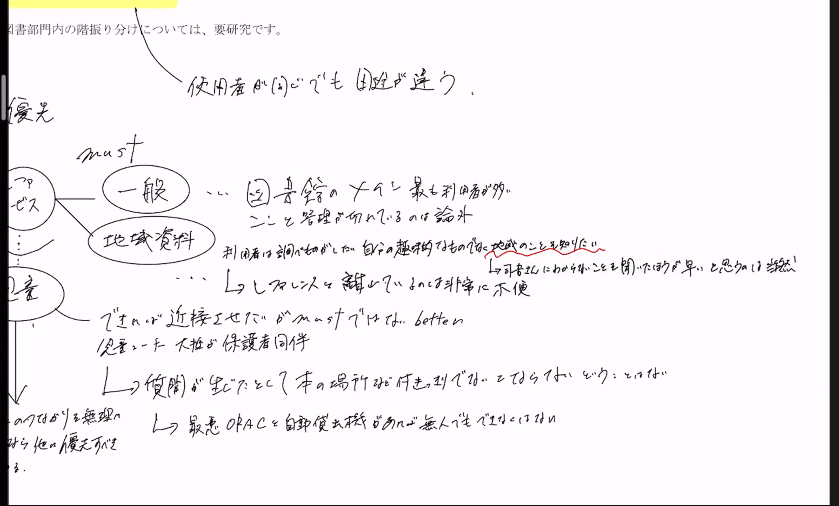 図書部門内の階振り分けについては、要研究です。
使用者が同じでも 目的が違う.
優先
must
ファ
ービス
一般
… 図書館のメイン 最も利用者が多い
ここと管理が切れているのは論外
地域資料
利用者は調べものがしたい 自分の趣味的なものでなく地域のことも知りたい
↳司書さんにわからないことも聞いたほうが早いと思うのは当然
… ↳レファレンスと離れているのは非常に不便
児童
できれば近接させたいがmustではない better
児童コーナー 大抵が保護者同伴
↳質問が生じたとして本の場所など付きっきりでないとならないということはない
↳最悪OPACと自動貸出機があれば無人でもできなくはない
のつながりを無理に
なら他に優先すべき
る.